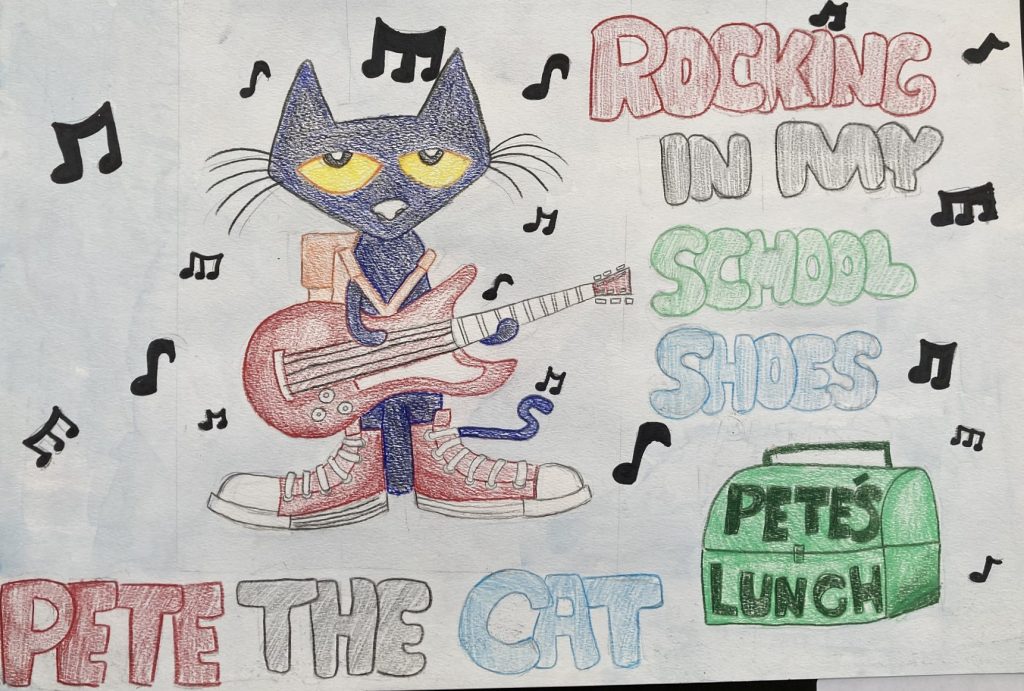 ROCKING
IN MY
SCHOOL
SHOES
PETE'S
LUNCH
PETE THE CAT